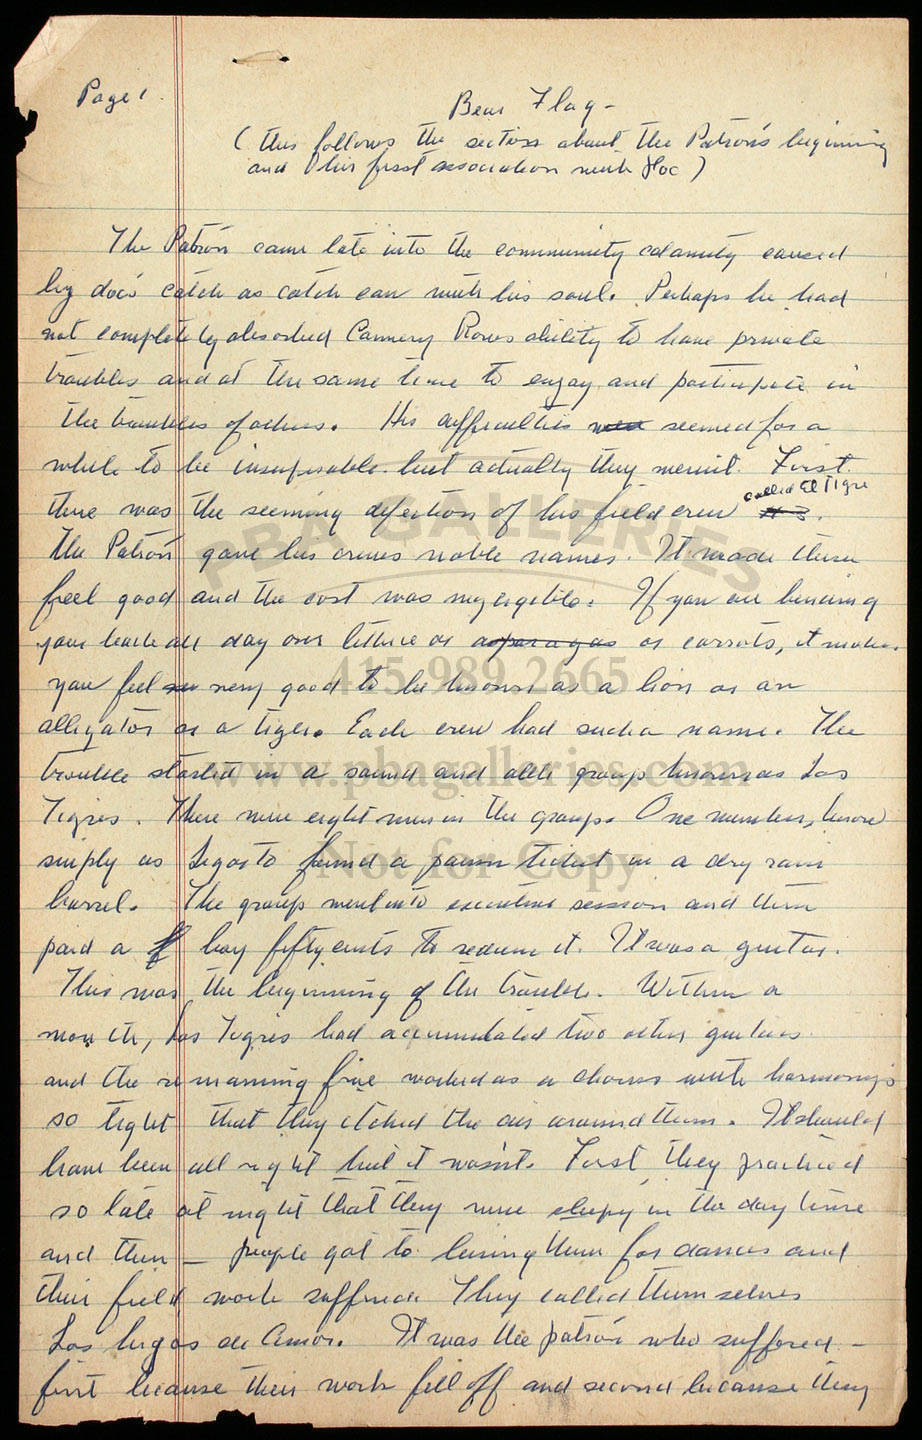 Page 1.
Bear Flag -
(this follows the section about the Patron's beginning
and his first association with Doc)
The Patrón came late into the community calamity caused
by doc's catch as catch can with his soul. Perhaps he had
not completely absorbed Cannery Rows ability to have private
troubles and at the same time to enjoy and participate in
the troubles of others. His difficulties were seemed for a
while to be insuperable but actually they weren't. First
called El Tigre
there was the seeming defection of his field crew.
The Patrón gave his crews noble names. It made them
feel good and the cost was negligible. If you are bending
your back all day over lettuce or asparagas or carrots, it makes
you feel very good to be known as a lion or an
alligator or a tiger. Each crew had such a name. The
trouble started in a sound and able group known as Los
Tigres. There were eight men in the group. One member, known
simply as Legosto found a pawn ticket in a dry rain
barrel. The group went into executive session and then
paid a boy fifty cents to redeem it. It was a guitar.
This was the beginning of the trouble. Within a
month, Los Tigres had accumulated two other guitars
and the remaining five worked as a chorus with harmonys
so tight that they etched the air around them. It should
have been all right but it wasn't. First they practiced
so late at night that they were sleepy in the day time
and then — people got to hiring them for dances and
their field work suffered. They called themselves
Los de Amor. It was the patrón who suffered -
first because their work fell off and second because they
PBA GALLERIES
415.989.2665
www.pbagalleries.com
Not for Copy